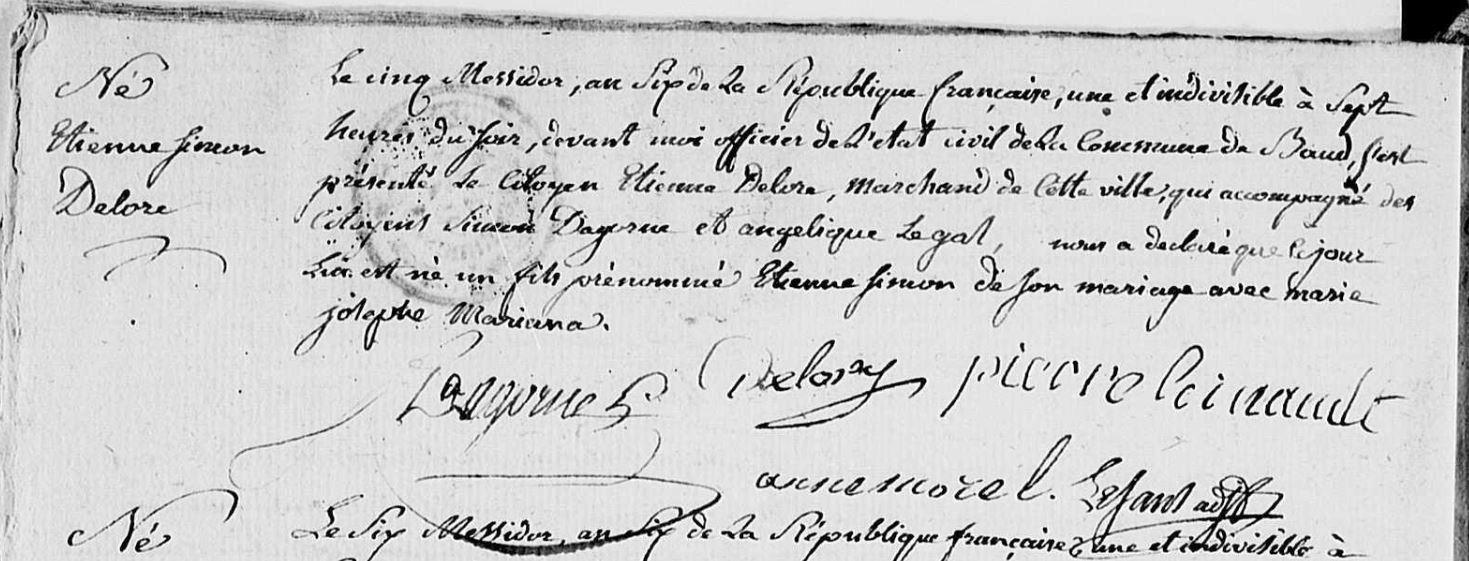 Né
Etienne simon
Delore
Le cinq Messidor, an Six de La République française, une et indivisible à Sept
heures du soir, devant moi officier de L'état civil de La Commune de Baud, s'est
présenté Le Citoyen Etienne Delore, marchand de Cette ville, qui accompagné des
Citoyens Simon Dagorne et angelique Le gal, nous a declaré que le jour
est né un fils prénommé Etienne simon de son mariage avec marie
josephe Mariana.
Dagorne Delory pierre
anne morel.
Né
Le Six Messidor, an Six de La République française, une et indivisible à